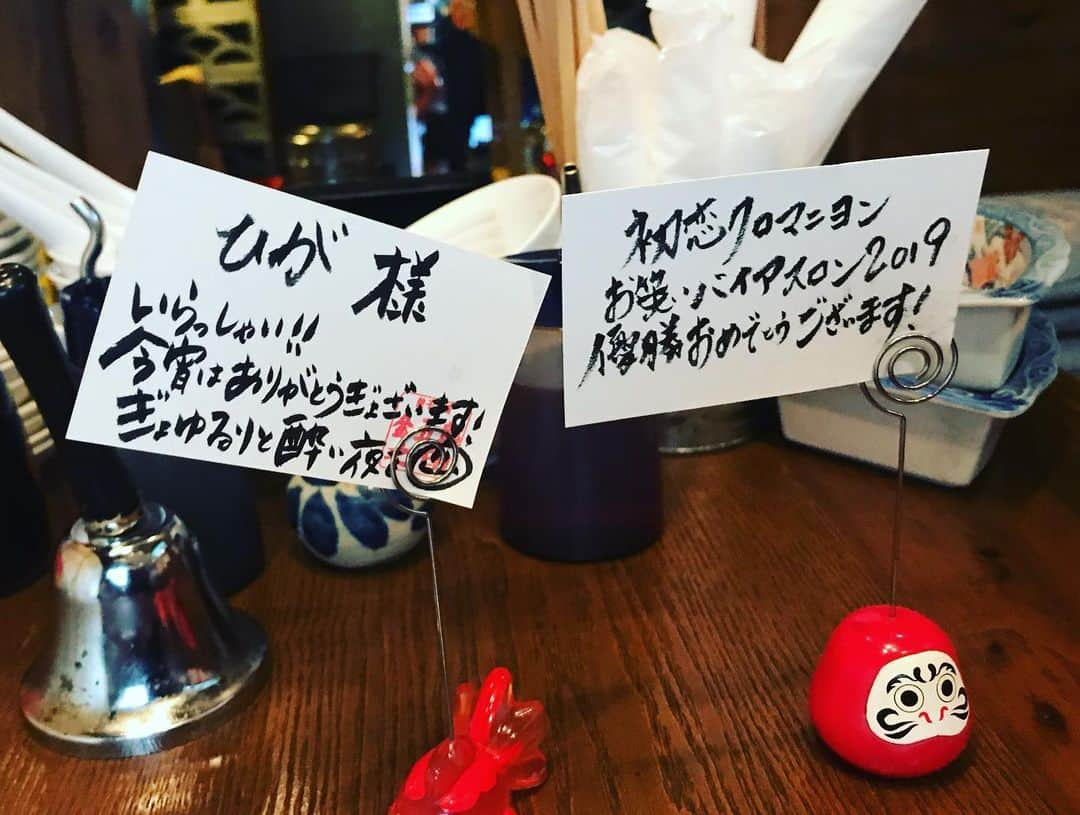 ひが 様
いらっしゃい!!
今宵はありがとうぎょざいます!
ぎょゆるりと酔い夜
初恋クロマニヨン
お笑いバイアスロン2019
優勝おめでとうございます!